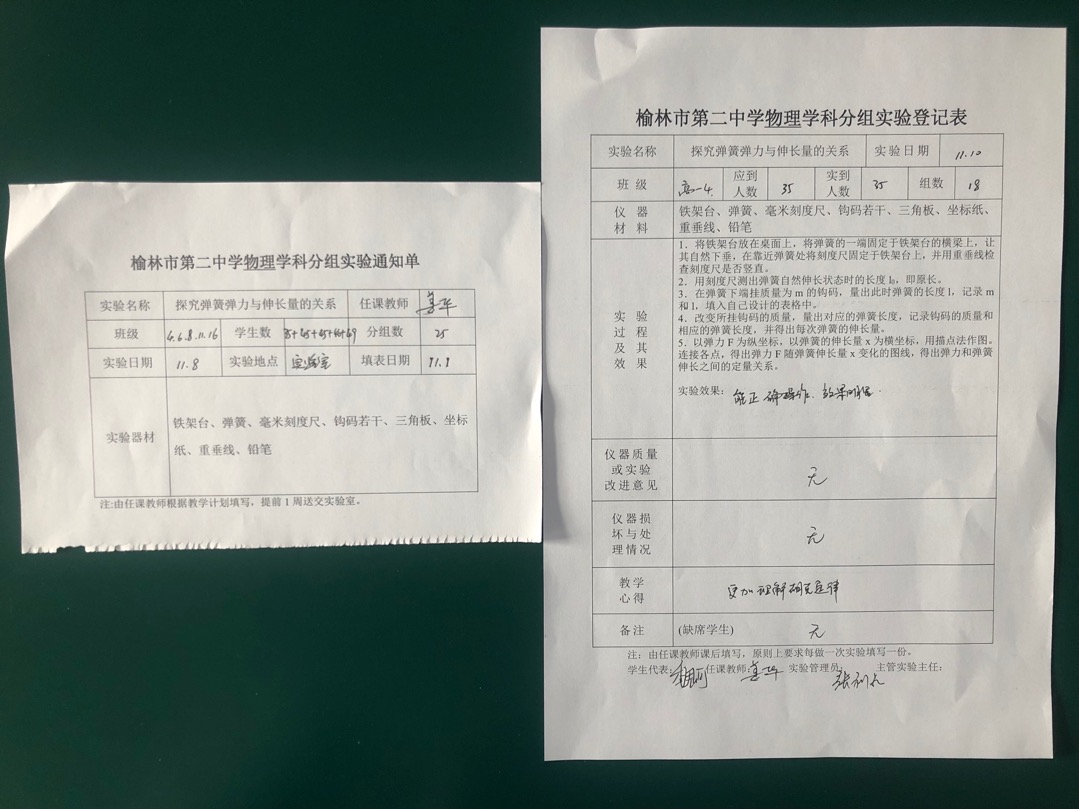 榆林市第二中学物理学科分组实验通知单
实验名称 探究弹簧弹力与伸长量的关系 任课教师
班级 4.6.8.11.16 学生数 分组数 25
实验日期 11.8 实验地点 实验室 填表日期 11.1
实验器材
铁架台、弹簧、毫米刻度尺、钩码若干、三角板、坐标
纸、重垂线、铅笔
注:由任课教师根据教学计划填写，提前1周送交实验室。
榆林市第二中学物理学科分组实验登记表
实验名称 探究弹簧弹力与伸长量的关系 实验日期 11.10
班级 高一4. 应到人数 35 实到人数 35 组数 18
仪器材料
铁架台、弹簧、毫米刻度尺、钩码若干、三角板、坐标纸、
重垂线、铅笔
实验过程及其效果
1．将铁架台放在桌面上，将弹簧的一端固定于铁架台的横梁上，让
其自然下垂，在靠近弹簧处将刻度尺固定于铁架台上，并用重垂线检
查刻度尺是否竖直。
2．用刻度尺测出弹簧自然伸长状态时的长度 l₀，即原长。
3．在弹簧下端挂质量为 m 的钩码，量出此时弹簧的长度 l，记录 m
和 l，填入自己设计的表格中。
4．改变所挂钩码的质量，量出对应的弹簧长度，记录钩码的质量和
相应的弹簧长度，并得出每次弹簧的伸长量。
5．以弹力 F 为纵坐标，以弹簧的伸长量 x 为横坐标，用描点法作图。
连接各点，得出弹力 F 随弹簧伸长量 x 变化的图线，得出弹力和弹簧
伸长之间的定量关系。
实验效果： 能正确操作、效果明显.
仪器质量或实验改进意见 无
仪器损坏与处理情况 无
教学心得 更加理解胡克定律
备注 (缺席学生) 无
注：由任课教师课后填写，原则上要求每做一次实验填写一份。
学生代表： 任课教师： 实验管理员： 主管实验主任：